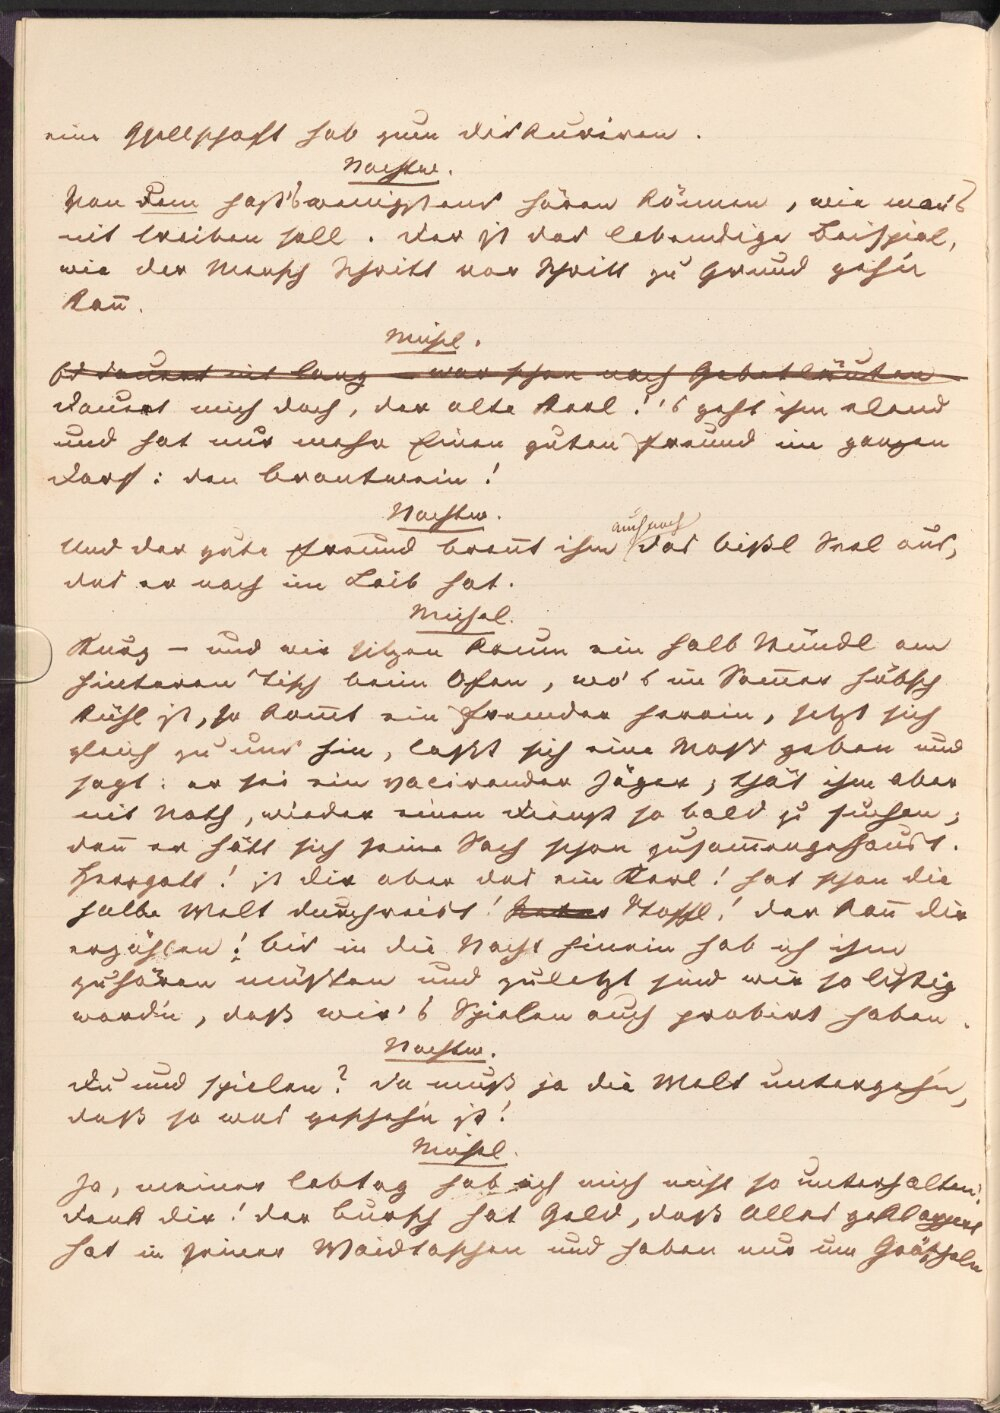 eine Gsellschaft hab zum diskuriren.
Nachtw.
Von Dem hast's wenigstens hören können, wie man's
nit treiben soll. Der ist das lebendige Beispiel,
wie der Mensch Schritt vor Schritt zu Grund geh'n
kan̄.
Michl.
Es dauert nit lang – war schon nach Gebetläuten
Dauert mich doch, der alte Kerl! 's geht ihm elend
und hat nur mehr Einen guten Freund im ganzen
Dorf: den Brantwein!
Nachtw.
auch noch
Und der gute Freund brent ihm das bißl Seel aus,
das er noch im Leib hat.
Michel.
Kurz – und wir sitzen kaum ein halb Stündl am
hinteren Tisch beim Ofen, wo's im Som̄er hübsch
kühl ist, so kom̄t ein Fremder herein, setzt sich
gleich zu uns hin, laßt sich eine Maß geben und
sagt: er sei ein vacirender Jäger; thät ihm aber
nit Noth, wieder einen Dienst so bald zu suchen;
den̄ er hätt sich seine Sach schon zusam̄engehaust.
Herrgott! ist dir aber das ein Kerl! hat schon die
halbe Welt durchreist! Stoffl! der kan̄ dir
erzählen! bis in die Nacht hinein hab ich ihm
zuhören müssen und zuletzt sind wir so lustig
word'n, daß wir's Spielen auch probirt haben.
Nachtw.
Du und spielen? da muß ja die Welt untergeh'n,
daß so was gescheh'n ist!
Michel.
Ja, meiner Lebtag hab ich mich nicht so unterhalten!
denk dir! der Bursch hat Geld, daß Alles geklappert
hat in seiner Waidtaschen und haben nur um Gröscheln